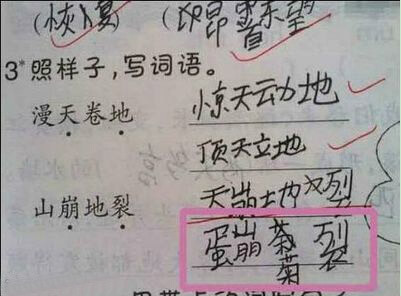 (恢复) (
3*照样子,写词语。
漫天卷地 惊天动地
顶天立地
山崩地裂 天崩地裂
蛋崩菊裂